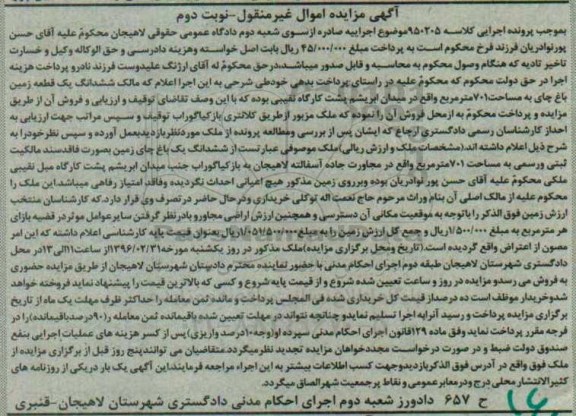 آگهی مزایده اموال غیرمنقول-نوبت دوم
بموجب پرونده اجرایی کلاسه ۹۵۰۲۰۵موضوع اجراییه صادره ازسوی شعبه دوم دادگاه عمومی حقوقی لاهیجان محکوم علیه آقای حسن
پورنوادریان فرزند فرخ محکوم است به پرداخت مبلغ ۴۵/۰۰۰/۰۰۰ ریال بابت اصل خواسته وهزینه دادرسی و حق الوکاله وکیل و خسارت
تاخیر تادیه که هنگام وصول محکوم به محاسبه و قابل صدور میباشد،درحق محکوم له آقای ارژنگ علیدوست فرزند نادرو پرداخت هزینه
اجرا در حق دولت محکوم که محکوم علیه در راستای پرداخت بدهی خودطی شرحی به این اجرا اعلام که مالک ششدانگ یک قطعه زمین
باغ چای به مساحت۷۰۱مترمربع واقع در میدان ابریشم پشت کارگاه نقیبی بوده که با این وصف تقاضای توقیف و ارزیابی و فروش آن از طریق
مزایده و پرداخت محکوم به ازمحل فروش آن را نموده که ملک مزبور ازطریق کلانتری بازکیاگوراب توقیف و سپس مراتب جهت ارزیابی به
احداز کارشناسان رسمی دادگستری ارجاع که ایشان پس از بررسی ومطالعه پرونده از ملک موردنظربازدیدبعمل آورده و سپس نظرخودرا به
شرح ذیل اعلام داشته اند.(مشخصات ملک و ارزش ریالی)ملک موصوفی عبارتست از ششدانگ یک باغ چای زمین بصورت فاقدسند مالکیت
ثبتی ورسمی به مساحت ۷۰۱مترمربع واقع در مجاورت جاده آسفالته لاهیجان به بازکیاگوراب جنب میدان ابریشم پشت کارگاه مبل نقیبی
ملکی محکوم علیه آقای حسن پورنوادریان بوده وبرروی زمین مذکور هیچ اعیانی احداث نگردیده وفاقد امتیاز رفاهی میباشد.این ملک را
محکوم علیه از مالک اصلی آن بنام وراث مرحوم حاج نعمت اله توکلی خریداری ودرحال حاضر در تصرف وی قرار دارد.که کارشناسان منتخب
ارزش زمین فوق الذکر راباتوجه به موقعیت مکانی آن دسترسی و همچنین ارزش اراضی مجاورو بادرنظر گرفتن سایرعوامل موثر در قضیه بازای
هر مترمربع به مبلغ ۱/۵۰۰/۰۰۰ریال و جمع کل ارزش زمین را به مبلغ ۱/۰۵۱/۵۰۰/۰۰۰ریال بعنوان قیمت پایه کارشناسی اعلام داشته که این امر
مصون از اعتراض واقع گردیده است.(تاریخ ومحل برگزاری مزایده)ملک مذکور در روز یکشنبه مورخه۱۳۹۶/۰۲/۳۱ازساعت۱۱الی۱۲در محل
دادگستری شهرستان لاهیجان طبقه دوم اجرای احکام مدنی با حضور نماینده محترم دادستان شهرستان لاهیجان از طریق مزایده حضوری
به فروش می رسدو مزایده در روز و ساعت تعیین شده شروع و از قیمت پایه شروع و کسی که بالاترین قیمت را پیشنهاد نماید فروخته خواهد
شدوخریدار موظف است ده درصداز قیمت کل خریداری شده فی المجلس پرداخت و مانده ثمن معامله را حداکثر ظرف مهلت یک ماه از تاریخ
برگزاری مزایده پرداخت و رسید آنرابه اجرا تسلیم نمایدو چنانچه نتواند در مهلت تعیین شده باقیمانده ثمن معامله(۹۰درصدباقیمانده)را در
فرجه مقرر پرداخت نماید وفق ماده ۱۲۹قانون اجرای احکام مدنی سپرده او(وجه۱۰درصد واریزی)پس از کسر هزینه های عملیات اجرایی بنفع
صندوق دولت ضبط و در صورت درخواست مجددخواهان مزایده تجدید نظرمیگردد.متقاضیان می توانندپنج روز قبل از برگزاری مزایده از
ملک فوق واقع در آدرس فوق الذکربازدیدوجهت کسب اطلاعات بیشتر به این اجراء مراجعه فرمایند.این آگهی یک بار دریکی از روزنامه های
کثیرالانتشار محلی درج ودرمعابرعمومی و نقاط پرجمعیت شهرالصاق میگردد.
ح ۶۵۷ دادورز شعبه دوم اجرای احکام مدنی دادگستری شهرستان لاهیجان-قنبری